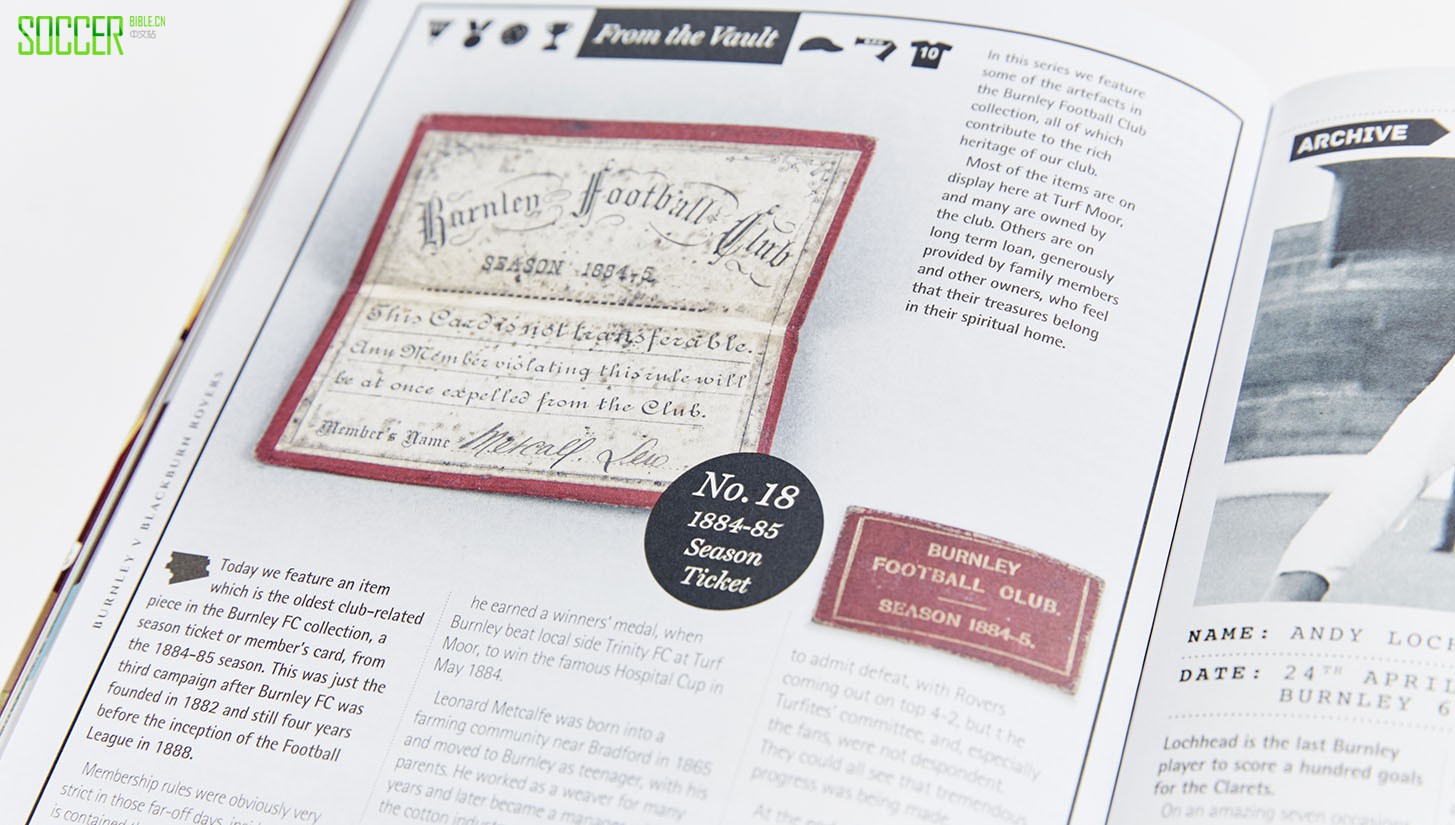 SOCCER
BIBLE.CN
中文站
From the Vault
10
In this series we feature
some of the artefacts in
the Burnley Football Club
collection, all of which
contribute to the rich
heritage of our club.
Most of the items are on
display here at Turf Moor,
and many are owned by
the club. Others are on
long term loan, generously
provided by family members
and other owners, who feel
that their treasures belong
in their spiritual home.
Burnley Football Club
SEASON 1884-5.
This Card is not transferable.
Any Member violating this rule will
be at once expelled from the Club.
Member's Name Metcalf. Leo
No. 18
1884-85
Season
Ticket
BURNLEY
FOOTBALL CLUB.
SEASON 1884-5.
BURNLEY V BLACKBURN ROVERS
Today we feature an item
which is the oldest club-related
piece in the Burnley FC collection, a
season ticket or member's card, from
the 1884-85 season. This was just the
third campaign after Burnley FC was
founded in 1882 and still four years
before the inception of the Football
League in 1888.
Membership rules were obviously very
strict in those far-off days,
is contained
he earned a winners' medal, when
Burnley beat local side Trinity FC at Turf
Moor, to win the famous Hospital Cup in
May 1884.
Leonard Metcalfe was born into a
farming community near Bradford in 1865
and moved to Burnley as teenager, with his
parents. He worked as a weaver for many
years and later became a
the cotton
to admit defeat, with Rovers
coming out on top 4-2, but t he
Turfites' committee, and, especially
the fans, were not despondent.
They could all see that tremendous
progress was being made.
At the
ARCHIVE
NAME: ANDY LOCH
DATE: 24TH APRIL
BURNLEY 6
Lochhead is the last Burnley
player to score a hundred goals
for the Clarets.
On an amazing seven occasions